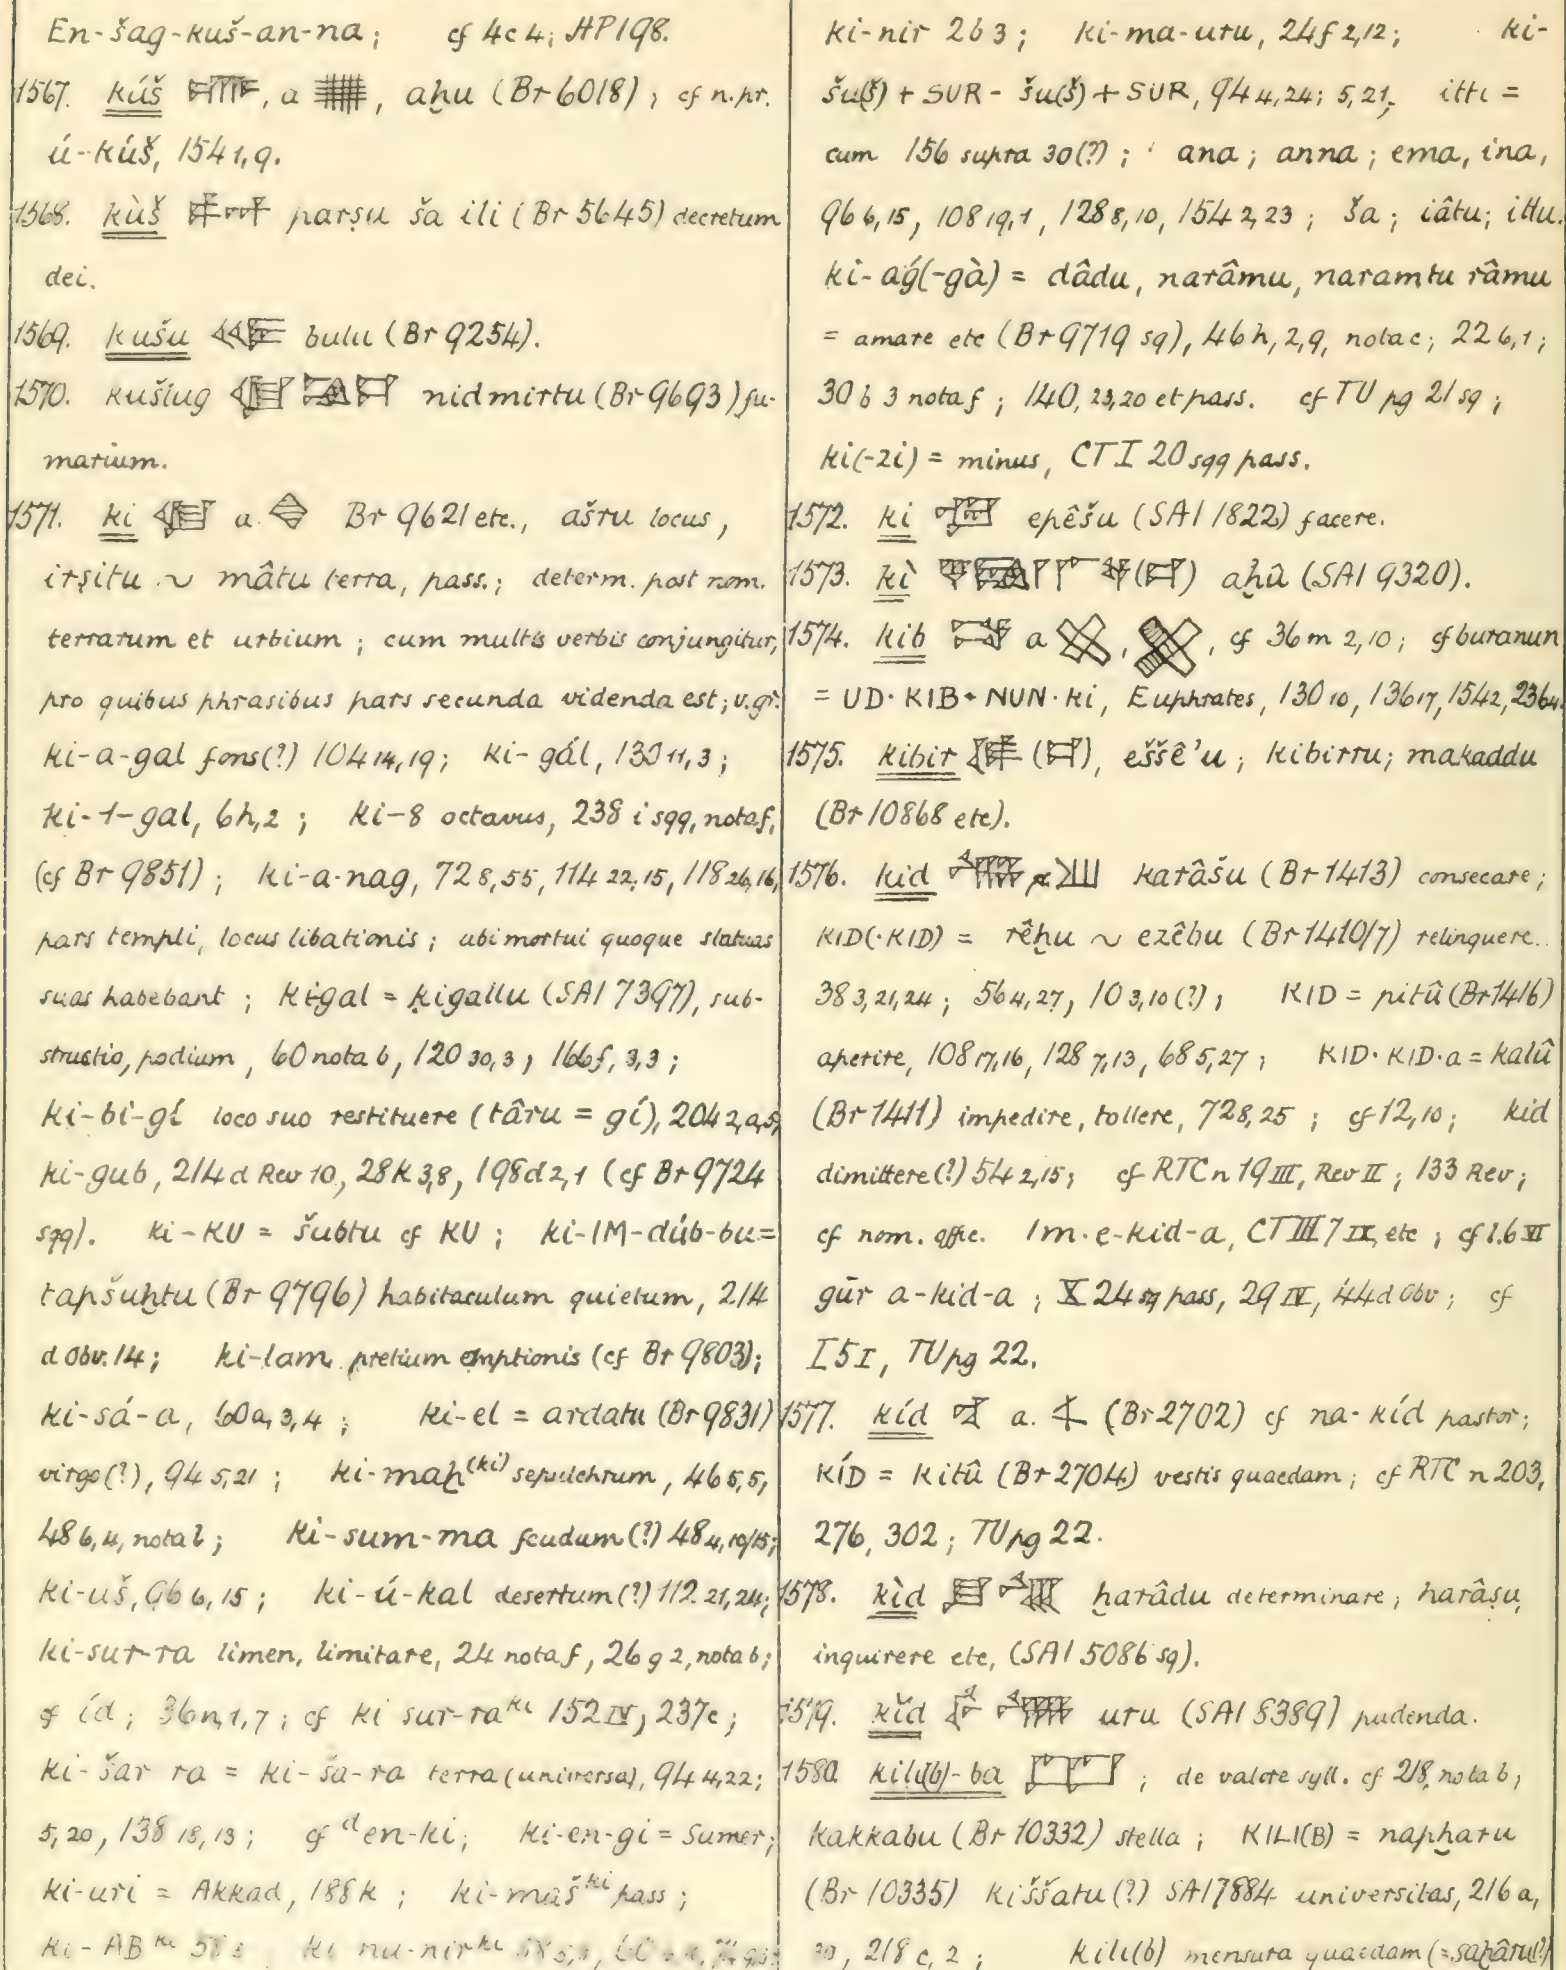 En-šag-kuš-an-na; cf 4c4; HP 198.
1567. kúš, a, aḫu (Br 6018); cf n.pr.
ú-kúš, 154 1,9.
1568. kùš parṣu ša ili (Br 5645) decretum
dei.
1569. kušu bulu (Br 9254).
1570. kušlug nidmirtu (Br 9693) fu-
marium.
1571. ki a Br 9621 etc., ašru locus,
irṣitu ~ mâtu terra, pass.; determ. post nom.
terrarum et urbium; cum multis verbis conjungitur,
pro quibus phrasibus pars secunda videnda est; v.gr.
ki-a-gal fons(?) 104 14,19; ki-gál, 130 11,3;
ki-1-gal, 6h,2; ki-8 octavus, 238 i sqq, nota f,
(cf Br 9851); ki-a-nag, 72 8,55, 114 22,15, 118 26,16,
pars templi, locus libationis; ubi mortui quoque statuas
suas habebant; kigal = kigallu (SAI 7397), sub-
structio, podium, 60 nota b, 120 30,3; 166f, 3,3;
ki-bi-gí loco suo restituere (târu = gí), 204 2,a,5,
ki-gub, 214 d Rev 10, 28k 3,8, 198d 2,1 (cf Br 9724
sqq). ki-KU = šubtu cf KU; ki-IM-dúb-bu =
tapšuḫtu (Br 9796) habitaculum quietum, 214
d Obv. 14; ki-lam pretium emptionis (cf Br 9803);
ki-sá-a, 60a, 3,4; ki-el = ardatu (Br 9831)
virgo(?), 94 5,21; ki-maḫ(ki) sepulchrum, 46 5,5,
48 6,4, nota l; ki-sum-ma feudum(?) 48 4,10/15;
ki-uš, 96 6,15; ki-ú-kal desertum(?) 112. 21,24;
ki-sur-ra limen, limitare, 24 nota f, 26 g 2, nota b;
cf íd; 36n,1,7; cf ki sur-ra ki 152 IV, 237c;
ki-šar ra = ki-ša-ra terra (universa), 94 4,22;
5,20, 138 18,13; cf d en-ki; ki-en-gi = Sumer;
ki-uri = Akkad, 188k; ki-maš ki pass;
ki-AB ki ki nu-nir ki
ki-nir 26 3; ki-ma-uru, 24f 2,12; ki-
šu(š) + SUR - šu(š) + SUR, 94 4,24; 5,21; itti =
cum 156 supra 30(?); ana; anna; ema, ina,
96 6,15, 108 19,1, 128 8,10, 154 2,23; ša; iâtu; ittu.
ki-aǵ(-gà) = dâdu, narâmu, naramtu râmu
= amare etc (Br 9719 sq), 46h, 2,9, nota c; 22 6,1;
30 b 3 nota f; 140, 23,20 et pass. cf TU pg 21 sq;
ki(-zi) = minus, CT I 20 sqq pass.
1572. ki epêšu (SAI 1822) facere.
1573. kì aḫû (SAI 9320).
1574. kib a, , cf 36m 2,10; cf buranun
= UD·KIB·NUN·ki, Euphrates, 130 10, 136 17, 154 2, 236
1575. kibir, eššê'u; kibirru; makaddu
(Br 10868 etc).
1576. kid karâšu (Br 1413) consecare;
KID(·KID) = rêḫu ~ ezêbu (Br 1410/7) relinquere..
38 3,21,24; 56 4,27, 10 3,10(?); KID = pitû (Br 1416)
aperire, 108 17,16, 128 7,13, 68 5,27; KID·KID·a = kalû
(Br 1411) impedire, tollere, 72 8,25; cf 12,10; kid
dimittere(?) 54 2,15; cf RTC n 19 III, Rev II; 133 Rev;
cf nom. offic. Im·e-kid-a, CT III 7 IX, etc; cf l.6 VI
gūr a-kid-a; X 24 sq pass, 29 IV, 44d Obv; cf
I 5 I, TU pg 22.
1577. kíd a. (Br 2702) cf na-kíd pastor;
KÍD = kitû (Br 2704) vestis quaedam; cf RTC n 203,
276, 302; TU pg 22.
1578. kìd ḫarâdu determinare; harâṣu,
inquirere etc, (SAI 5086 sq).
1579. kĭd uru (SAI 8389) pudenda.
1580. kili(b)-ba; de valore syll. cf 218, nota b;
kakkabu (Br 10332) stella; KILI(B) = napḫaru
(Br 10335) kiššatu(?) SAI 7884 universitas, 216a,
30, 218 c, 2; kili(b) mensura quaedam (= saḫâru(?)